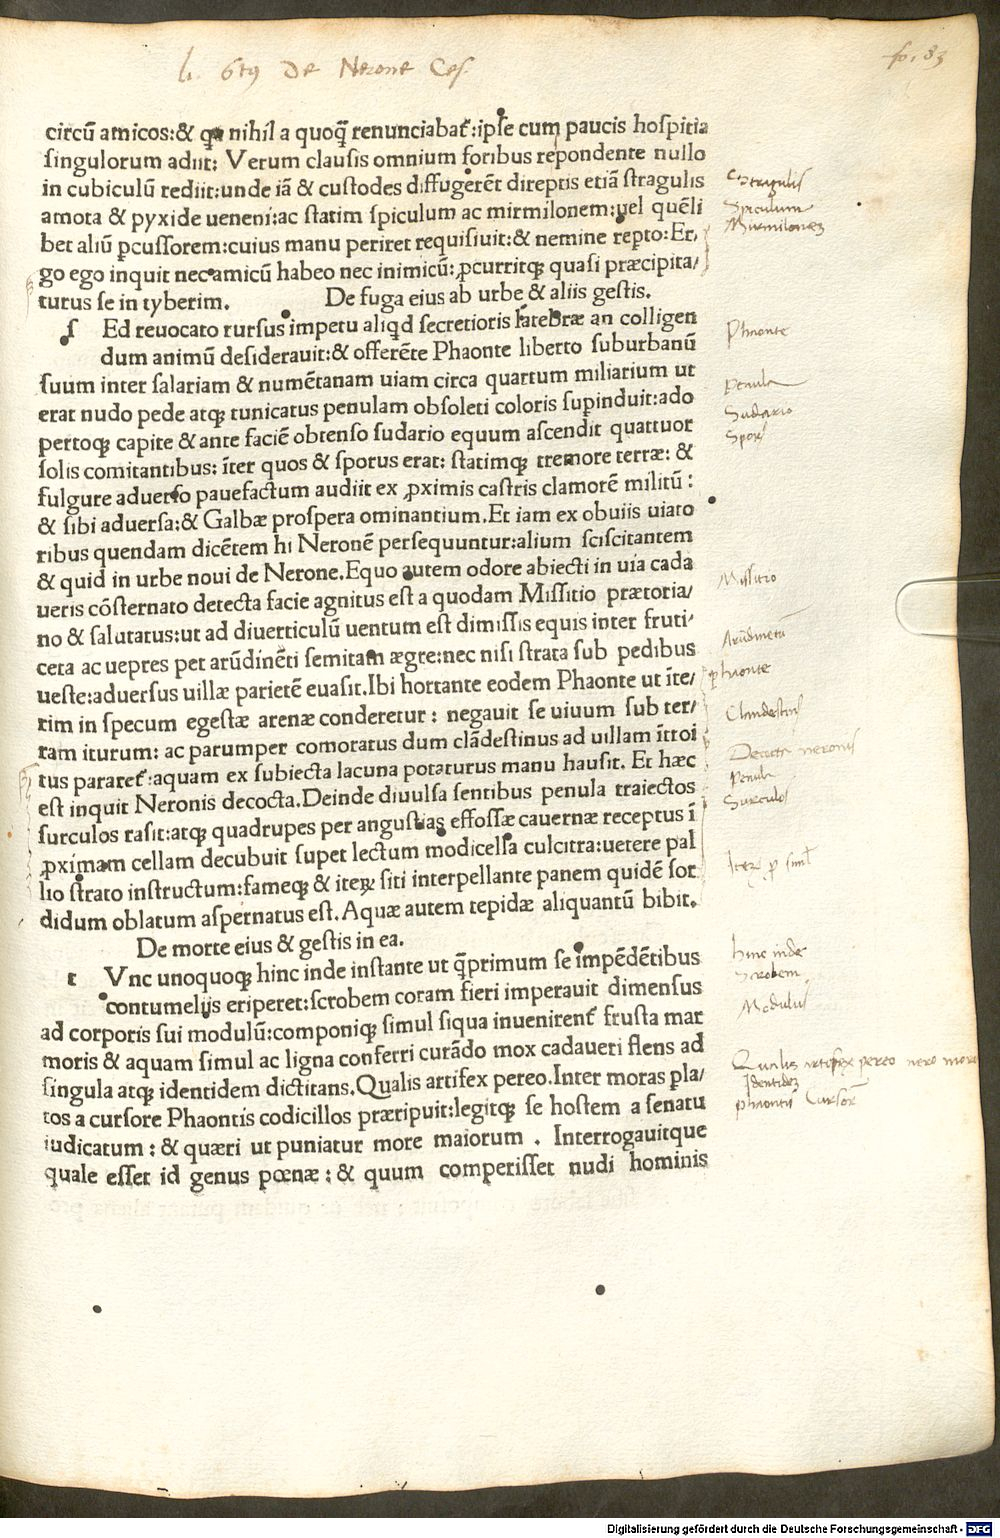 li. 6tus De Nerone Ces.
fo. 83
circū amicos:& quia nihil a quoq̄ renunciabat̄:ipse cum paucis hospitia
singulorum adiit: Verum clausis omnium foribus respondente nullo
in cubiculū rediit:unde iā & custodes diffugerēt direptis etiā stragulis
amota & pyxide ueneni:ac statim spiculum ac mirmilonem:uel quēli
bet aliū ꝑcussorem:cuius manu periret requisiuit:& nemine reꝑto:Er/
go ego inquit nec amicū habeo nec inimicū:ꝓcurritqꝫ quasi præcipita/
turus se in tyberim.
De fuga eius ab urbe & aliis gestis.
s Ed reuocato rursus impetu aliqd secretioris latebræ an colligen
dum animū desiderauit:& offerēte Phaonte liberto suburbanū
suum inter salariam & numētanam uiam circa quartum miliarium ut
erat nudo pede atqꝫ tunicatus penulam obsoleti coloris supinduit:ado
pertoqꝫ capite & ante faciē obtenso sudario equum ascendit quattuor
solis comitantibus: īter quos & sporus erat: statimqꝫ tremore terræ: &
fulgure aduerso pauefactum audiit ex ꝓximis castris clamorē militū:
& sibi aduersa:& Galbæ prospera ominantium.Et iam ex obuiis uiato
ribus quendam dicētem hi Neronē persequuntur:alium sciscitantem
& quid in urbe noui de Nerone.Equo autem odore abiecti in uia cada
ueris cōsternato detecta facie agnitus est a quodam Missitio prætoria/
no & salutatus:ut ad diuerticulū uentum est dimissis equis inter fruti/
ceta ac uepres per arūdinēti semitam ægre:nec nisi strata sub pedibus
ueste:aduersus uillæ parietē euasit.Ibi hortante eodem Phaonte ut īte/
rim in specum egestæ arenæ conderetur: negauit se uiuum sub ter/
ram iturum: ac parumper comoratus dum clādestinus ad uillam ītroi
tus pararet̄:aquam ex subiecta lacuna potaturus manu hausit. Et hæc
est inquit Neronis decocta.Deinde diuulsa sentibus penula traiectos
surculos rasit:atqꝫ quadrupes per angustias effossæ cauernæ receptus ī
ꝓximam cellam decubuit super lectum modicella culcitra:uetere pal
lio strato instructum:fameqꝫ & iteꝝ siti interpellante panem quidē sor
didum oblatum aspernatus est.Aquæ autem tepidæ aliquantū bibit.
De morte eius & gestis in ea.
t Vnc unoquoqꝫ hinc inde instante ut q̄primum se impēdētibus
contumeliis eriperet:scrobem coram fieri imperauit dimensus
ad corporis sui modulū:componiqꝫ simul siqua inuenirent̄ frusta mar
moris & aquam simul ac ligna conferri curādo mox cadaueri flens ad
singula atqꝫ identidem dictitans.Qualis artifex pereo.Inter moras pla/
tos a cursore Phaontis codicillos præripuit:legitqꝫ se hostem a senatu
iudicatum: & quæri ut puniatur more maiorum . Interrogauitque
quale esset id genus pœnæ: & quum comperisset nudi hominis
Stragulis
Spiculum
Mirmilonem
Phaonte
Penula
Sudario
Sporus
Missitio
Arūdinetū
phaonte
Clandestinus
Decocta neronis
Penula
Surculos
hinc inde
Scrobem
Modulus
Qualis artifex pereo nero more
Identidem
phaontis Cursor
Digitalisierung gefördert durch die Deutsche Forschungsgemeinschaft - DFG